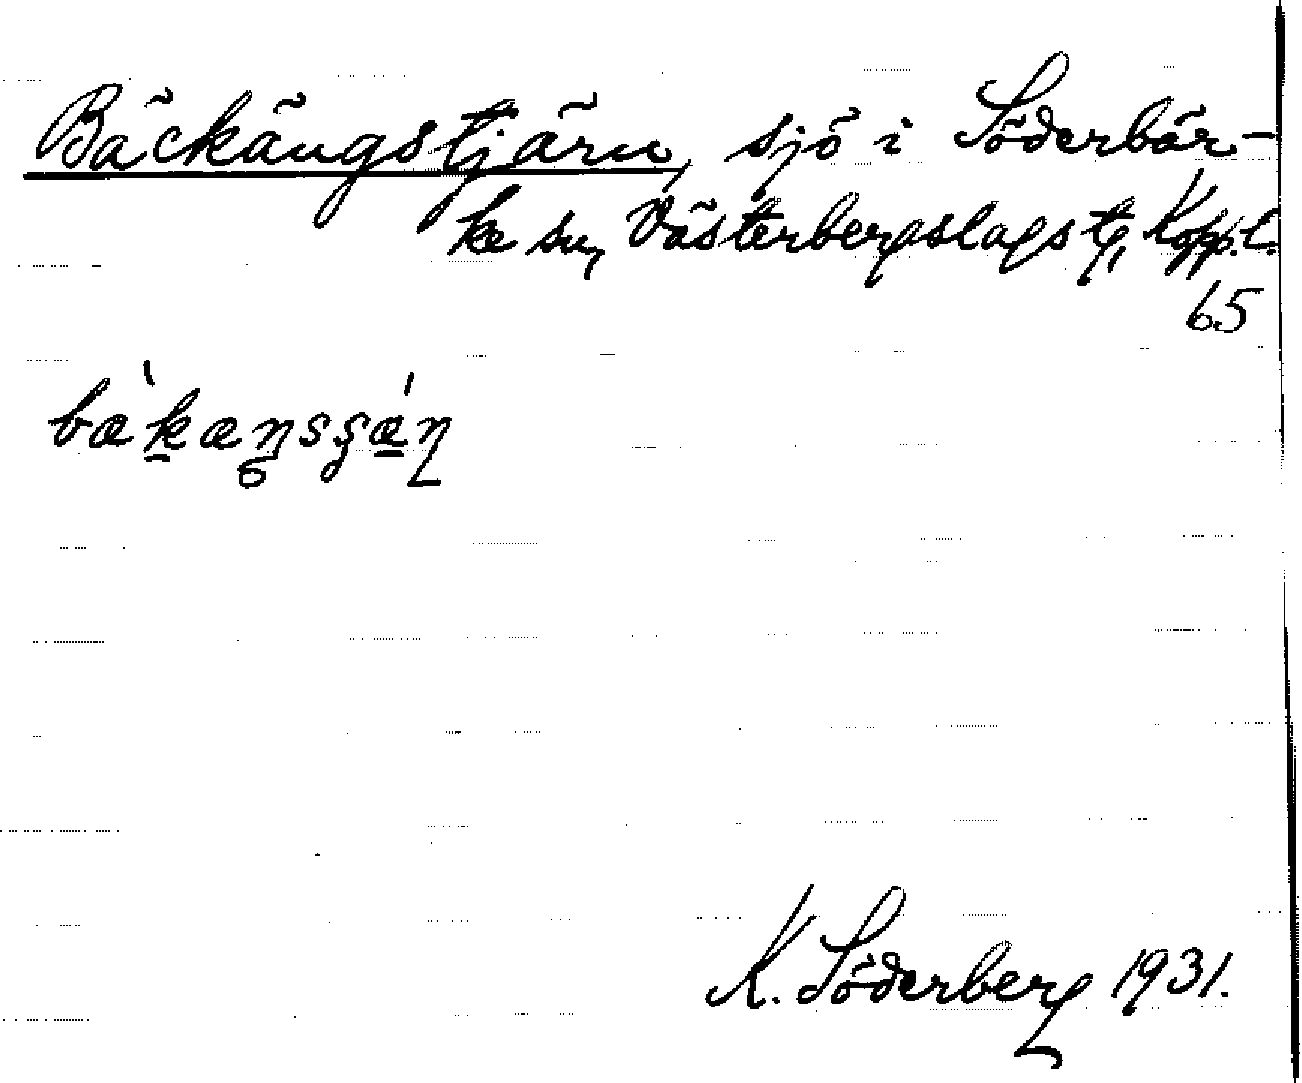 Bäckängstjärn, sjö i Söderbär-
ke sn, Västerbergslags tg, Kopp. l.
65
K. Söderberg 1931.